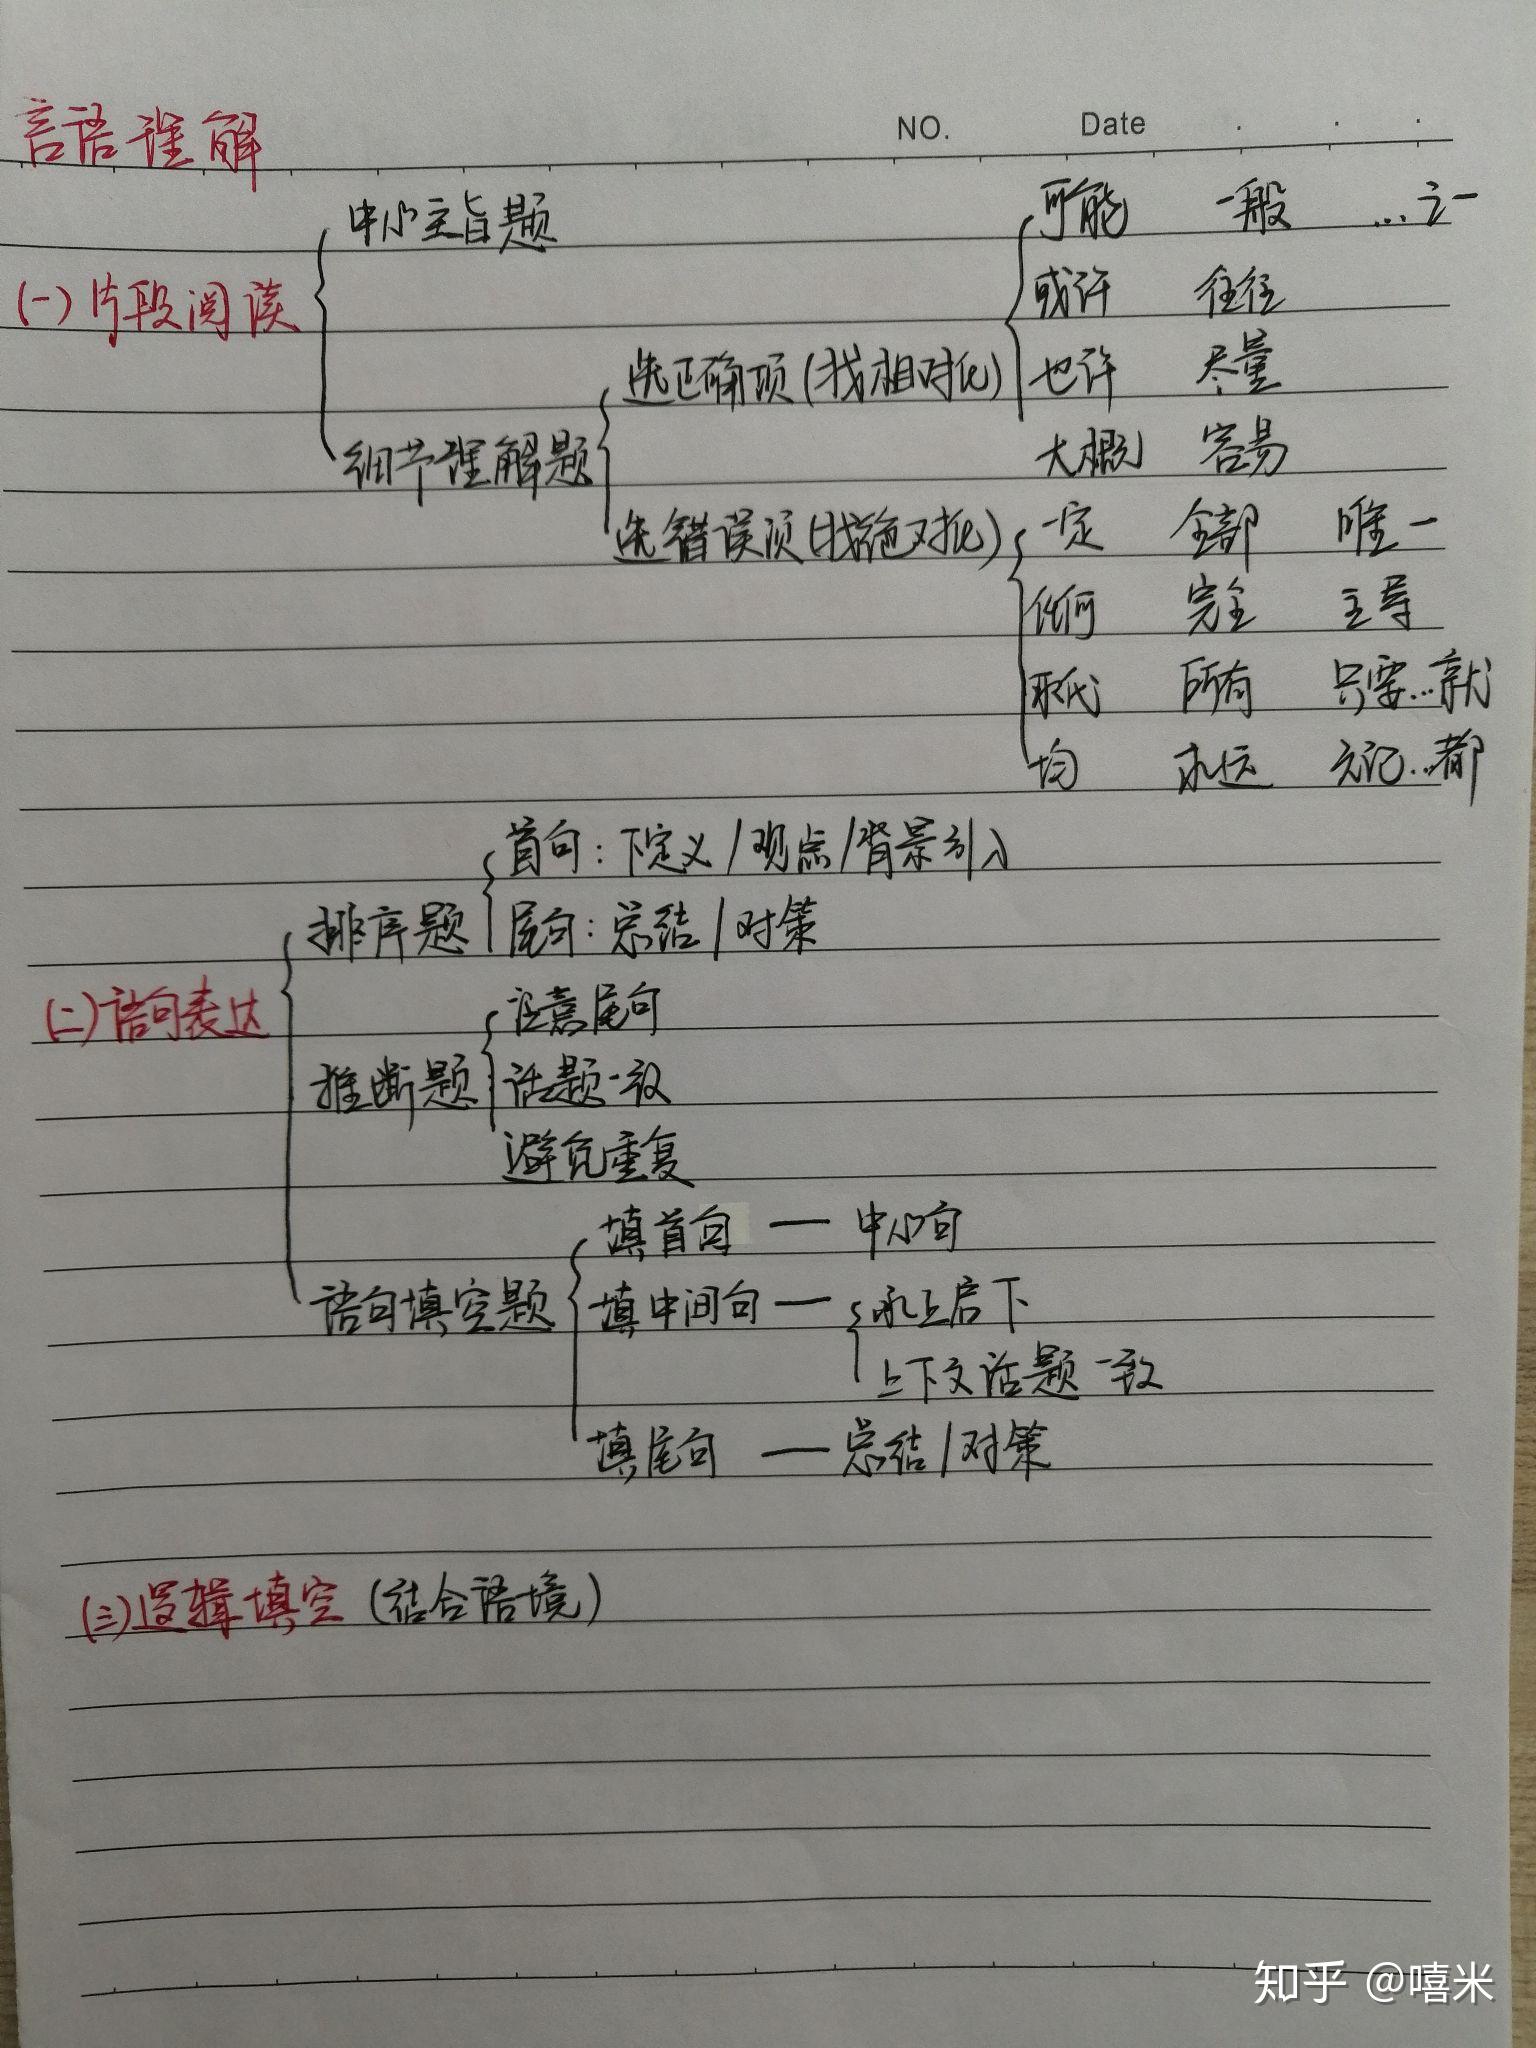 NO. Date
言语理解
中心主旨题
可能 一般 …之一
(一)片段阅读
或许 往往
选正确项(找相对化)
也许 尽量
细节理解题
大概 容易
选错误项(找绝对化)
一定 全部 唯一
任何 完全 主导
取代 所有 只要…就
均 永远 无论…都
首句:下定义/观点/背景引入
排序题
尾句:总结/对策
(二)语句表达
注意尾句
推断题
话题一致
避免重复
填首句 — 中心句
语句填空题
填中间句 — 承上启下
上下文话题一致
填尾句 — 总结/对策
(三)逻辑填空(结合语境)
知乎 @嘻米